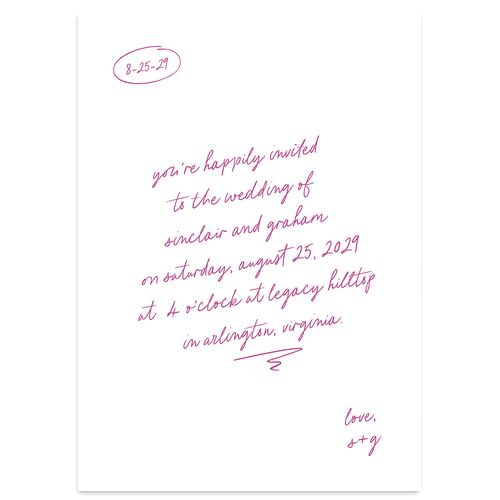 8-25-29
you're happily invited
to the wedding of
sinclair and graham
on saturday, august 25, 2029
at 4 o'clock at legacy hilltop
in arlington, virginia.
love,
s+g